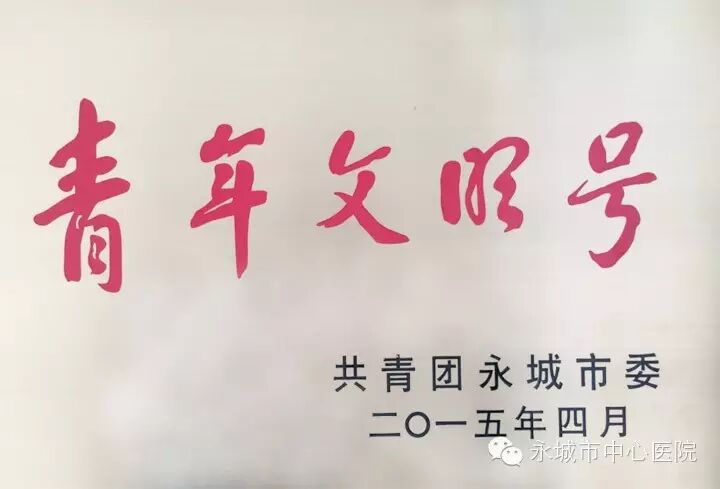 青年文明号
共青团永城市委
二〇一五年四月
永城市中心医院